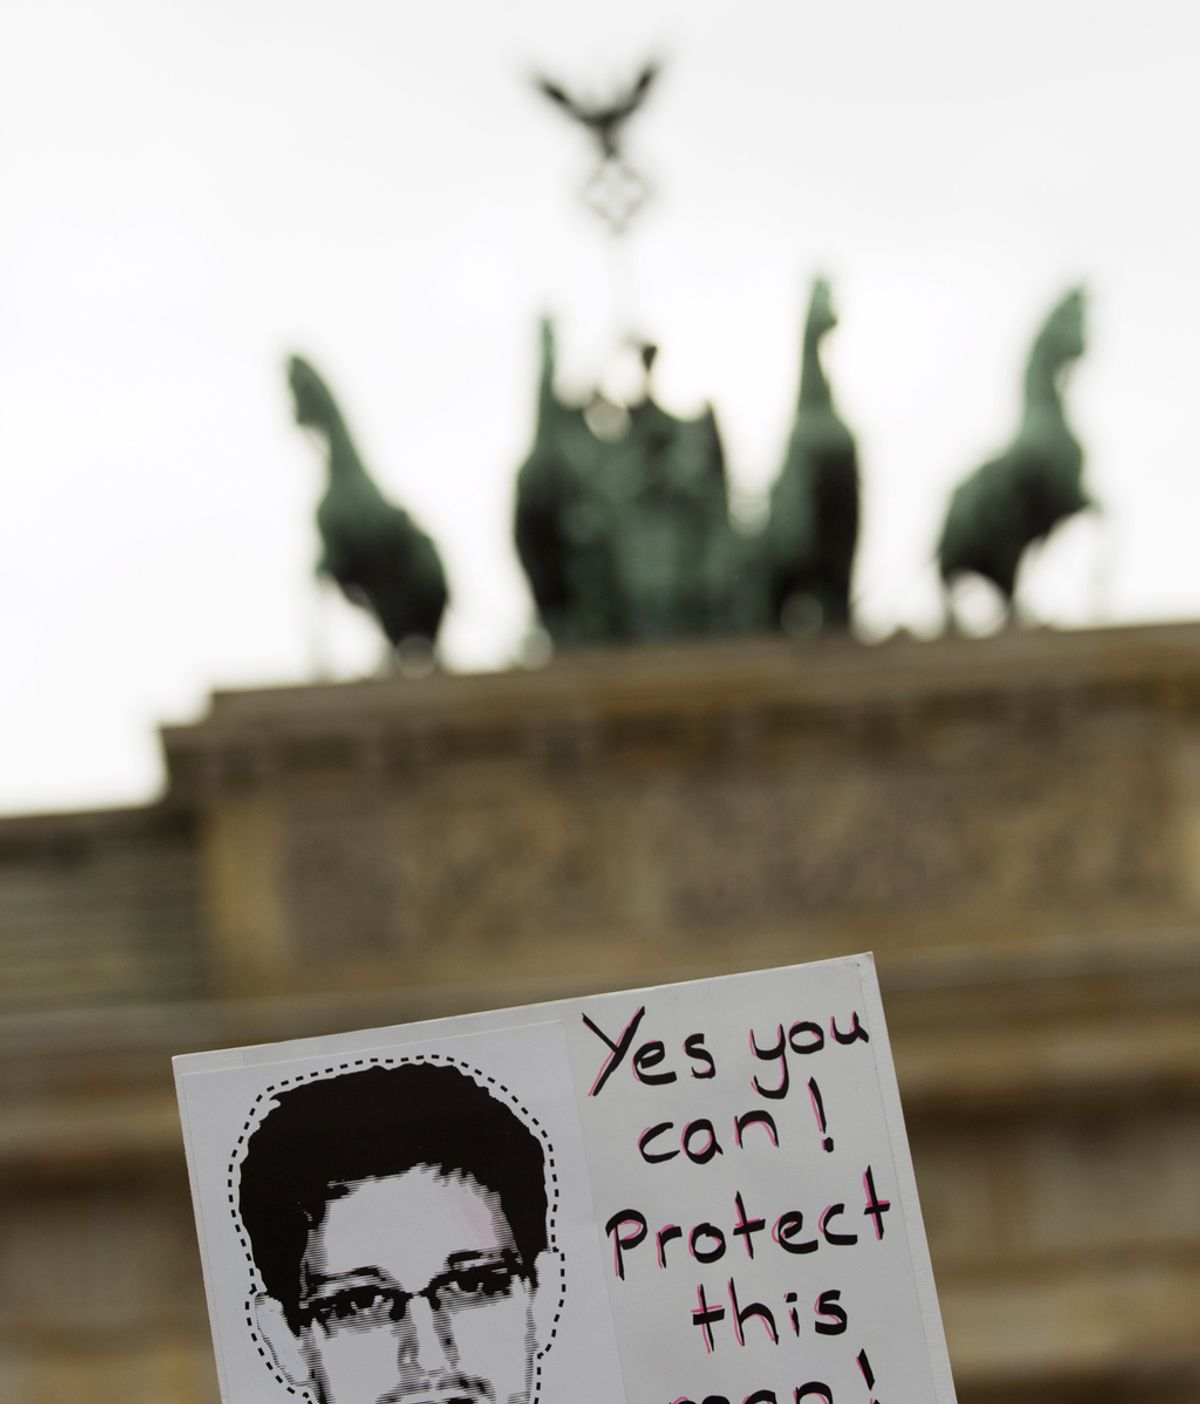 Yes you
can!
Protect
this
man!